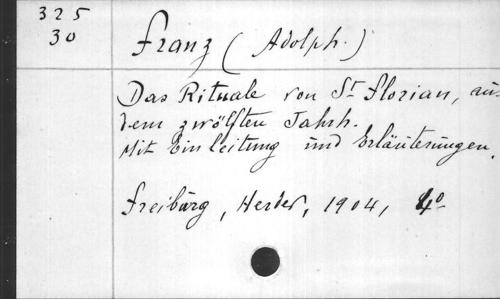 325
30
Franz (Adolph.)
Das Rituale von St. Florian, aus
dem zwölften Jahrh.
Mit Einleitung und Erläuterungen.
Freiburg, Herder, 1904, 4°